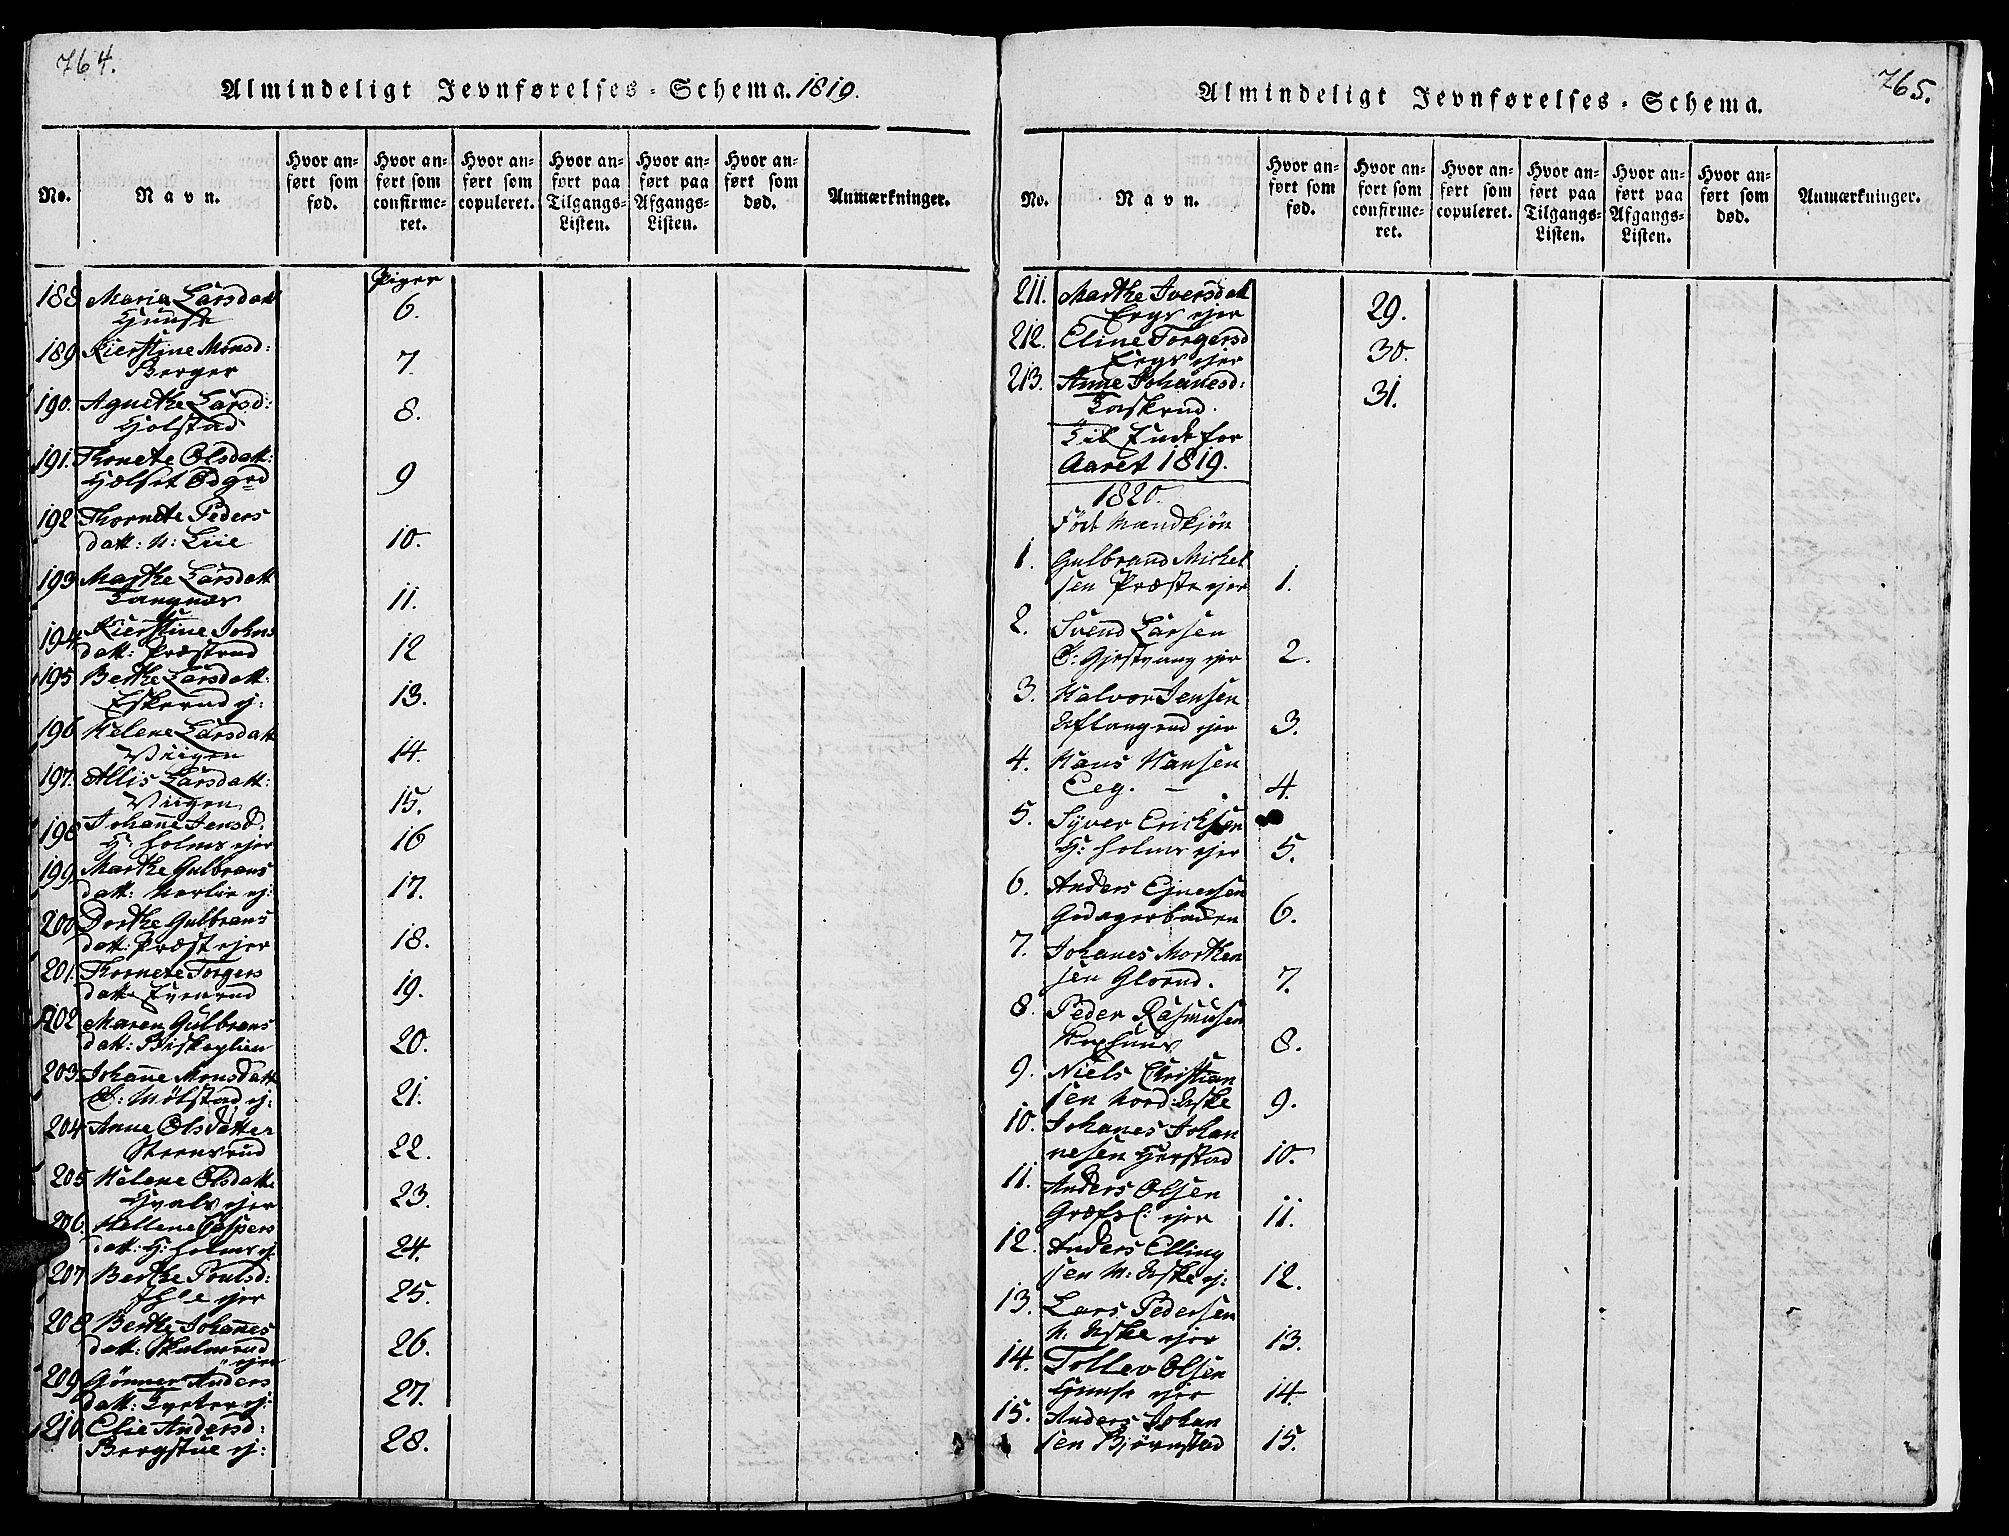 764.
Almindeligt Jevnførelses-Schema. 1819.
No.
Navn.
Hvor anført som fød.
Hvor anført som confirmeret.
Hvor anført som copuleret.
Hvor anført paa Tilgangs-Listen.
Hvor anført paa Afgangs-Listen.
Hvor anført som død.
Anmærkninger.
Piger
188 Maria Larsdatt
Hunse 6.
189 Kierstine Monsd:
Berger 7.
190. Agnethe Larsd:
Holstad 8.
191. Thonete Olsdatt:
Hølset Ødgrd 9
192 Thornete Peders
datt: N: Liie 10.
193 Marthe Larsdatt
Tangnæs 11.
194 Kierstine Johns
datt: Præstrud 12
195 Berthe Larsdatt:
Eskerud ej: 13.
196 Helene Larsdatt
Viigen 14.
197. Allis Larsdatt:
Viigen 15.
198 Johane Jensd:
H: holms ejer 16
199 Marthe Gulbrans
datt: Norlie ej: 17.
200 Dorthe Gulbrans
datt: Præst ejer 18.
201. Thornete Torgers
datt: 19.
202 Maren Gulbrans
datt: Biskoplien 20.
203 Johane Monsdatt
Ø: Mølstad ej: 21.
204 Anne Olsdatter
Steensrud 22.
205 Helene Olsdatt:
Hvals ejer 23.
206. Hellene Caspers
datt: H: holms ej 24.
207 Berthe Poulsd:
Ihle ejer 25.
208 Berthe Johanes
datt: Skulmrud
ejer 26.
209 Gønner Anders
datt: Tveter ej: 27.
210 Elie Andersd:
Bergstue ej: 28.
765.
Almindeligt Jevnførelses-Schema.
No.
Navn.
Hvor anført som fød.
Hvor anført som confirmeret.
Hvor anført som copuleret.
Hvor anført paa Tilgangs-Listen.
Hvor anført paa Afgangs-Listen.
Hvor anført som død.
Anmærkninger.
211. Marthe Iversdatt
Eegs ejer 29.
212. Eline Torgersd
Eegs ejer 30.
213. Anne Johanesd:
Taskerud. 31.
Til Ende for
Aaret 1819.
1820.
Født Mandkjøn
1. Gulbrand Michel
sen Præste ejer 1.
2. Svend Larsen
Ø: Gjestvang ejer 2.
3. Halvor Jensen
ejer 3.
4. Hans Hansen
Eeg. 4.
5. Syver Ericksen
H: holms ejer 5.
6. Anders Ejnersen
Godagerbaden 6.
7. Johanes Morthen
sen Glorud. 7.
8. Peder Rasmusen
8.
9. Niels Christian
sen Nord: Aske 9.
10. Johanes Johan
nesen Herstad 10.
11. Anders Olsen
Græfs: ejer 11.
12. Anders Elling
sen N: Aske ej: 12.
13. Lars Pedersen
N: Aske ejer 13.
14. Tollev Olsen
Hunse ejer 14.
15. Anders Johan
sen Bjørnstad 15.